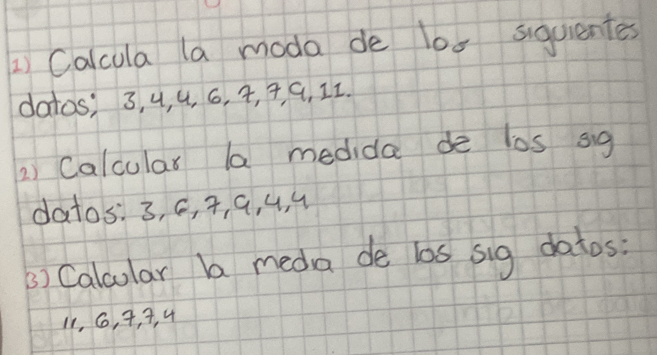 1) Calcula la moda de los siguientes
datos; 3, 4, 4, 6, 7, 7, 9, 11.
2) Calcular la medida de los sig
datos: 3, 6, 7, 9, 4, 4
3) Calcular la media de los sig datos:
11, 6, 7, 7, 4